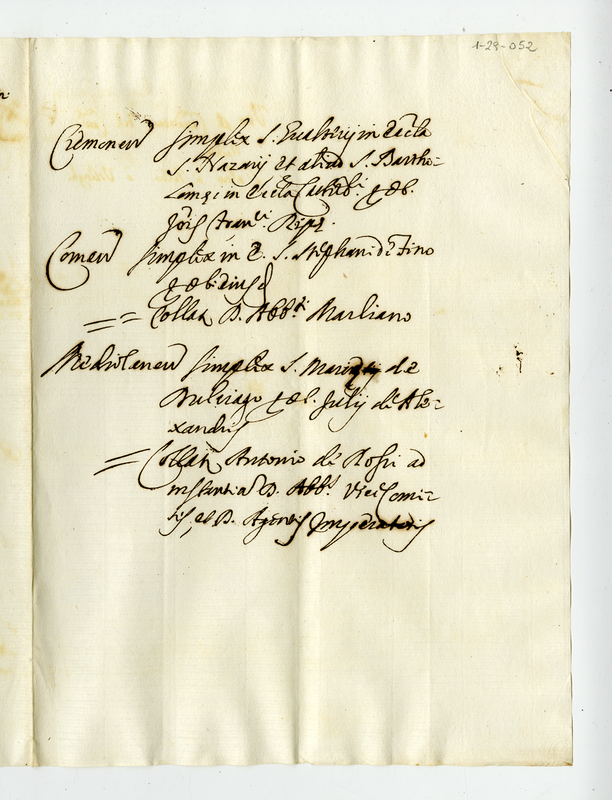 1-29-052
Cremonen simplex S. in Eccla
S. Nazarij et aliud S. Bartho-
lomei in Eccla Cathedr. p ob.
Joïs Franc. Ripe.
Comen simplex in E. S. Stephani de Fino
p obitus
== Collat D. Abb. Marliano
Mediolanen simplex S. de
Bulciago p ob. Julij de Ale-
xandris
= Collat Antonio de Rossi ad
instantia D. Abb. Vicecomi-
tis, et D. Agentis Imperatoris